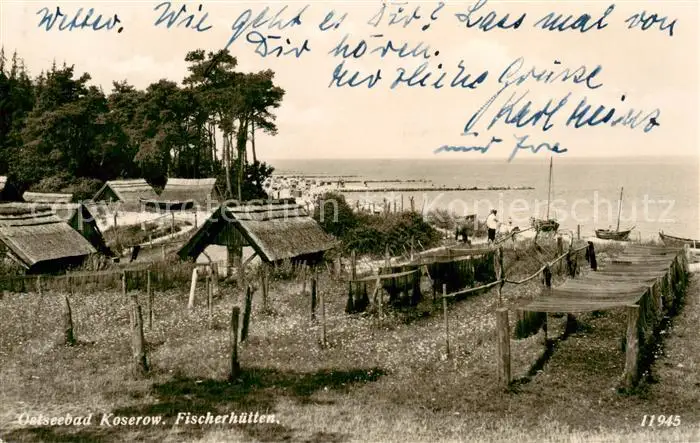 Wetter. Wie geht es Dir? Lass mal von
Dir hören.
herzliche Grüsse
Karl Heinz
und
Ostseebad Koserow. Fischerhütten.
11945